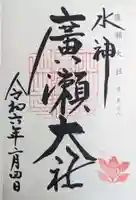 水神
廣瀬大社
令和六年二月四日